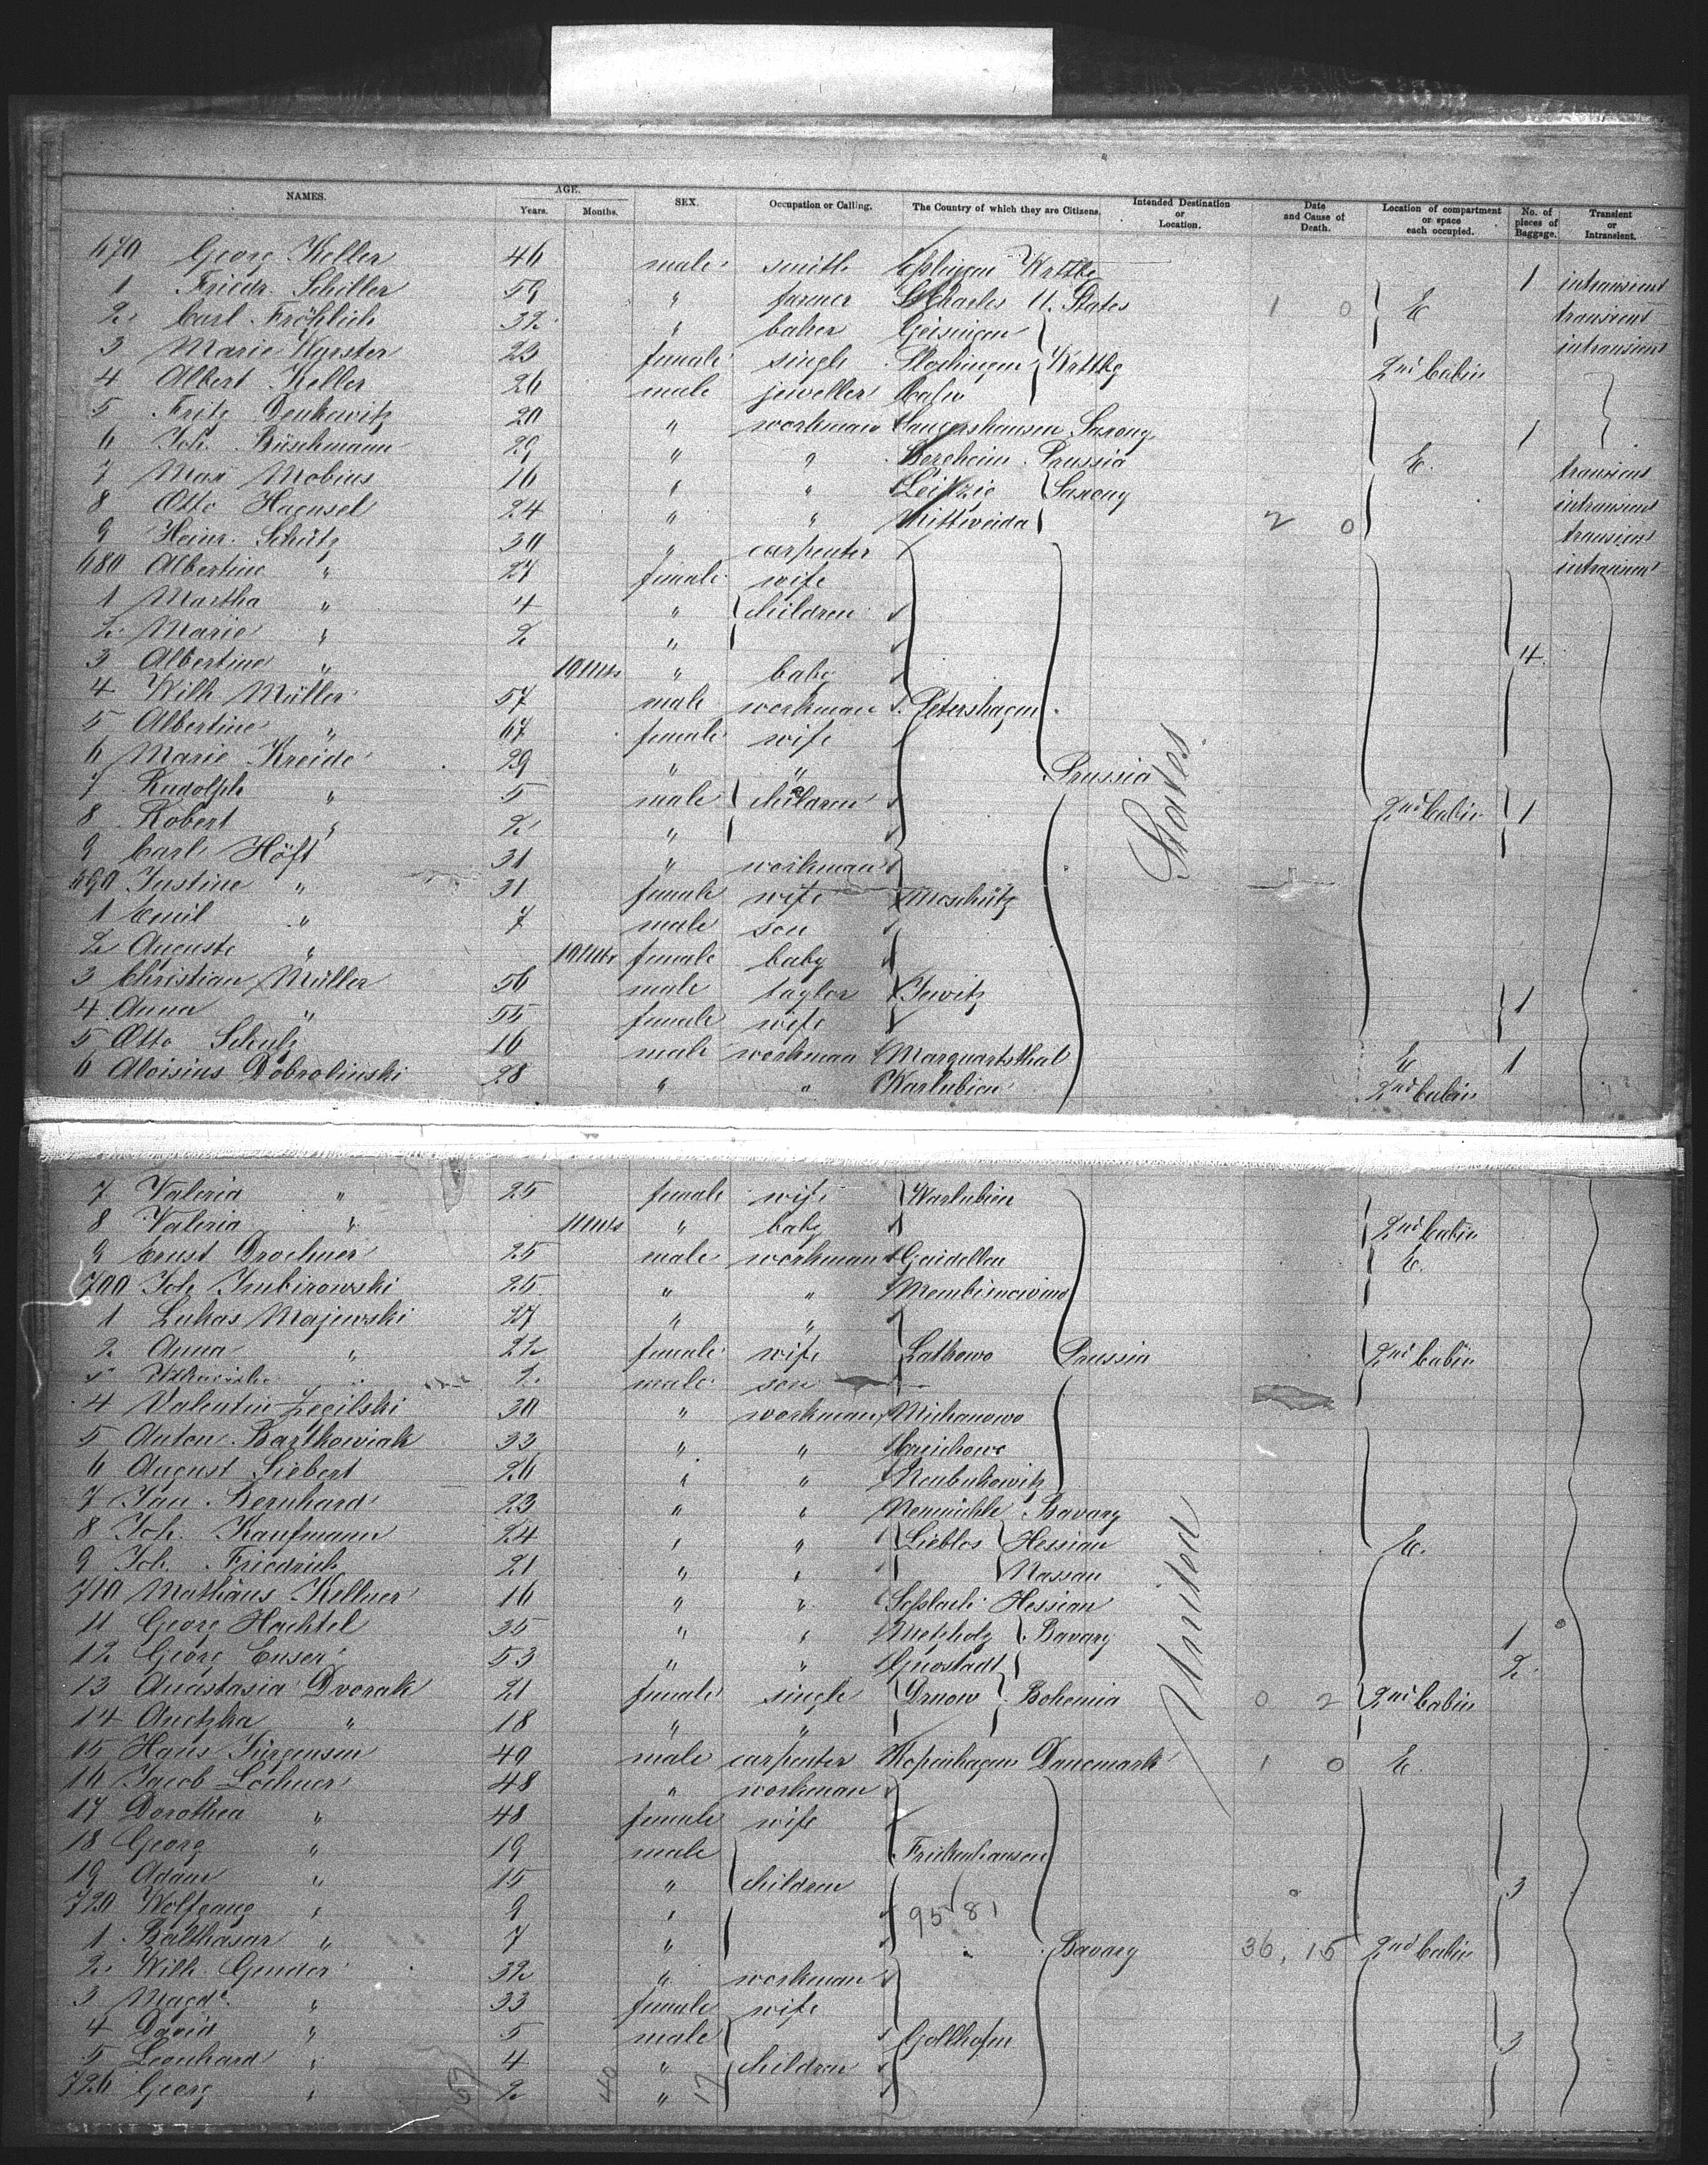 NAMES. AGE. Years. Months. SEX. Occupation or Calling. The Country of which they are Citizens. Intended Destination or Location. Date and Cause of Death. Location of compartment or space each occupied. No. of pieces of Baggage. Transient or Intransient.
670 Georg Keller 46 male smith Esslingen Wrttbg 1 intransient
1 Friedr. Schiller 59 " farmer St Charles U. States 1 0 E transient
2 Carl Fröhlich 32 " baker Geisingen intransient
3 Marie Wurster 23 female single Plochingen Wrttbg 2nd Cabin
4 Albert Keller 26 male jeweller Calw
5 Fritz 20 " workman Sangershausen Saxony 1
6 Joh. Büschmann 29 " " Bercheim Prussia E. transient
7 Max Mobius 16 " " Leipzig Saxony intransient
8 Otto Haensel 24 " " Mittweida 2 0 transient
9 Heinr. Schütz 30 " carpenter intransient
680 Albertine " 27 female wife
1 Martha " 4 " children
2 Marie " 2 "
3 Albertine " 10 Mts " baby 4
4 Wilh Müller 57 male workman Petershagen
5 Albertine " 67 female wife
6 Marie Kreide 29 " " Prussia States
7 Rudolph " 5 male children 2nd Cabin 1
8 Robert " 2 "
9 Carl Höft 31 " workman
690 Justine " 31 female wife Meschütz
1 Emil " 7 male son
2 Auguste " 10 Mts female baby
3 Christian Müller 56 male taylor Jewitz 1
4 Anna " 55 female wife
5 Otto Schulz 16 male workman Marquartsthal E 1
6 Aloisius Dobrolinski 28 " " Warlubien 2nd Cabin
7 Valeria " 25 female wife Warlubien
8 Valeria " 11 Mts " baby 2nd Cabin
9 Ernst Drochner 25 male workman Gaidellen E.
700 Joh 25 " "
1 Lukas Majewski 27 " "
2 Anna " 22 female wife Lathowo Prussia 2nd Cabin
3 " 2 male son
4 Valentin 30 " workman Michanowo
5 Anton Bartkowiak 33 " "
6 August Siebert 26 " " Neubukowitz
7 Jan Bernhard 23 " " Neumühle Bavary
8 Joh. Kaufmann 24 " " Lieblos Hessian E.
9 Joh. Friedrich 21 " " Nassau
710 Mathäus Kellner 16 " " Hessian United
11 Georg Hachtel 35 " " Metzholz Bavary 1
12 Georg Enser 53 " " 2
13 Anastasia Dvorak 21 female single Drnow Bohemia 0 2 2nd Cabin
14 " 18 " "
15 Hans Jürgensen 40 male carpenter Kopenhagen Danemark 1 0 E.
16 Jacob Lochner 48 " workman
17 Dorothea " 48 female wife
18 Georg " 19 male Frickenhausen
19 Adam " 15 " children 3
720 Wolfgang " 9 " 95 81
1 Balthasar " 7 " Bavary 36, 15 2nd Cabin
2 Wilh. Gender 32 " workman
3 Magde. " 33 female wife
4 David " 5 male Gollhofen 3
5 Leonhard " 4 " children
726 Georg " 2 "
40 17